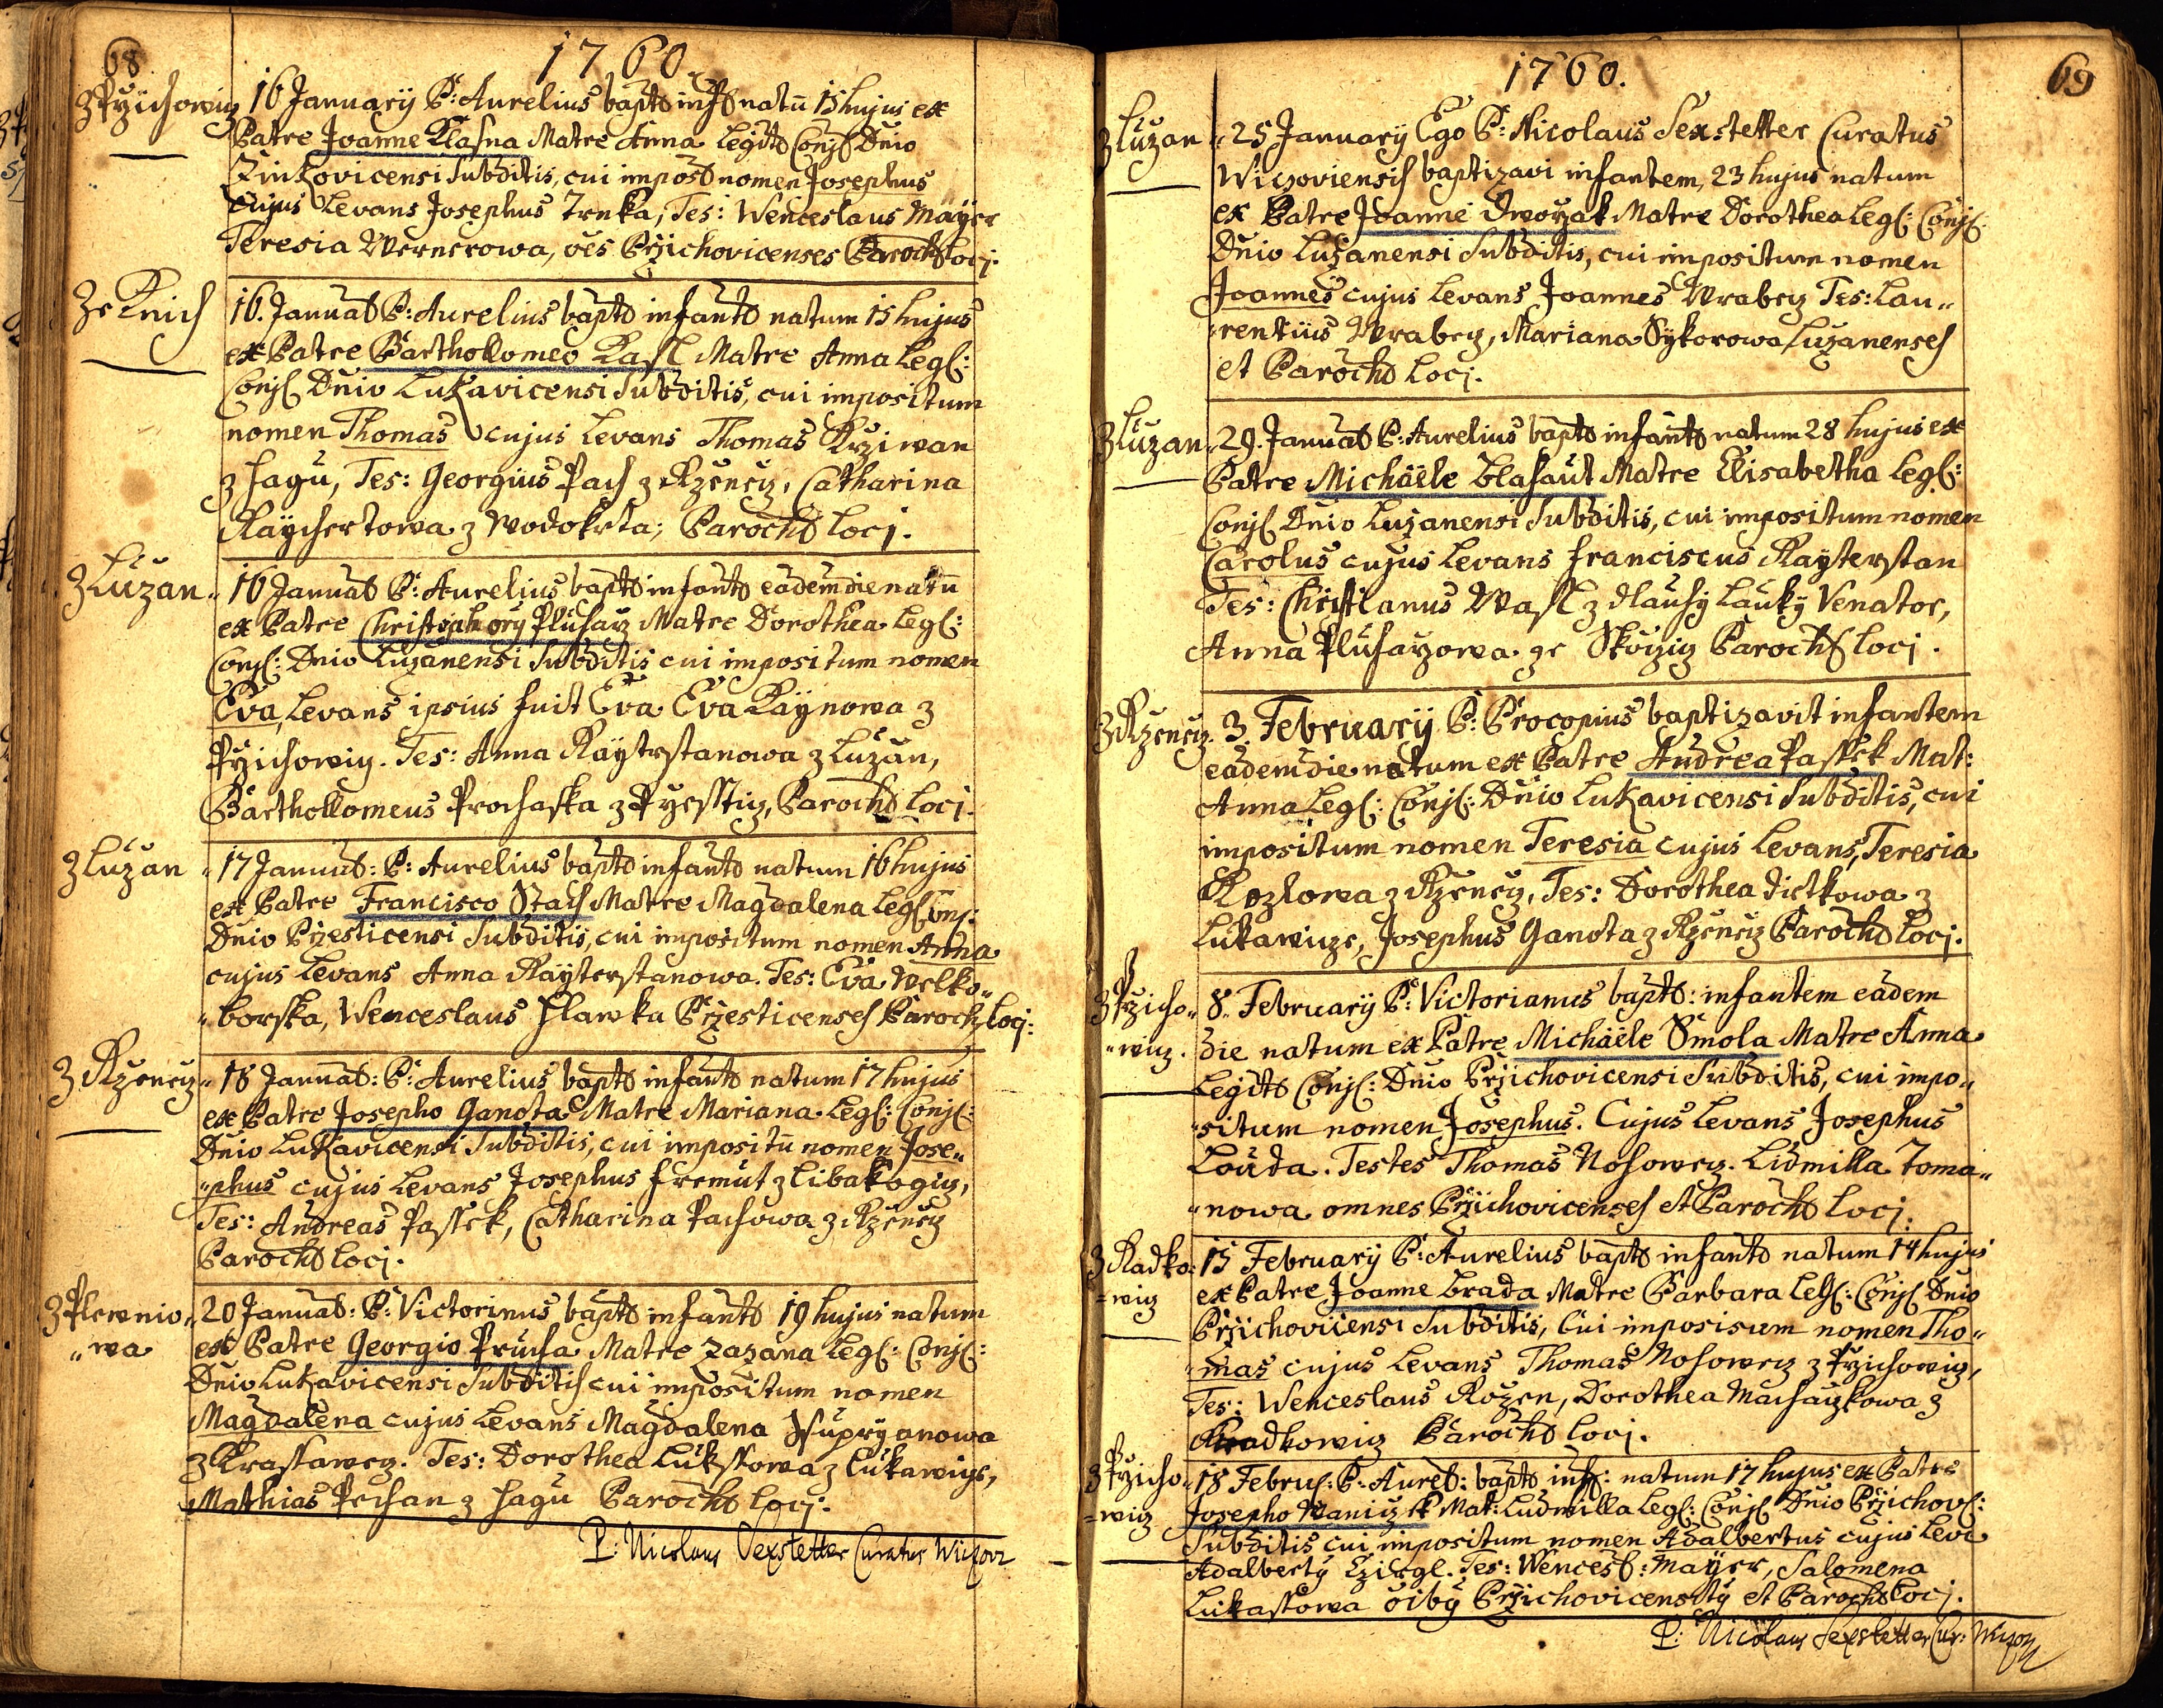 68
1760
z Przichowicz
16 Januarij P: Aurelius bapt inf natū 15 hujus ex
Patre Joanne Klasna Matre Anna Legit Conj Dnio
Zinkovicensi Subditis, cui impos nomen Josephus
cujus Levans Josephus Trnka, Tes: Wenceslaus Mayer
Teresia Wernerowa, oēs Przichovicenses Paroch Loci.
Ze Knich
16. Januar P: Aurelius bapt infant natum 15 hujus
ex Patre Barthollomeo Kasl Matre Anna Leg:
Conj Dnio Lukavicensi Subditis, cui impositum
nomen Thomas cujus Levans Thomas Krziwan
z Hagu, Tes: Georgius Pach z Rzenecz, Catharina
Raychertowa z Wodokrta; Paroch Loci.
z Luzan
16 Januar P: Aurelius bapt infant eadem die natū
ex Patre Pluharz Matre Dorothea Leg:
Conj: Dnio Luzanensi Subditis cui impositum nomen
Eva, Levans ipsius fuit Eva Eva Raynowa z
Przichowicz. Tes: Anna Raytrstanowa z Luzan,
Barthollomeus Prochaska z Przessticz, Paroch Loci.
z Luzan
17 Januar: P: Aurelius bapt infant natum 16 hujus
ex Patre Francisco Stach Matre Magdalena Leg Conj:
Dnio Przesticensi Subditis, cui impositum nomen Anna
cujus Levans Anna Rayterstanowa. Tes: Eva Welko„
„borska, Wenceslaus Hlawka Przesticenses Paroch Loci:
z Rzenecz
18 Januar: P: Aurelius bapt infant natum 17 hujus
ex Patre Josepho Ganota Matre Mariana Leg: Conj:
Dnio Lukavicensi Subditis, cui impositū nomen Jose„
„phus cujus Levans Josephus Fremut z Libakogicz,
Tes: Andreas Passek, Catharina Pachowa z Rzenecz
Paroch Loci.
z Plewnio„
„wa
20 Januar: P: Victorinus bapt infant 19 hujus natum
ex Patre Georgio Prucha Matre Zazana Leg: Conj:
Dnio Lukavicensi Subditis cui impositum nomen
Magdalena cujus Levans Magdalena
z Krastawcz. Tes: Dorothea Lukssowa z Lukawicze,
Mathias Pechan z Hagu Paroch Loci:
P: Nicolaus Sexstetter Curatus Wiczov
1760.
69
z Luzan
25 Januarij Ego P: Nicolaus Sexstetter Curatus
Wiczoviensis baptizavi infantem, 23 hujus natum
ex Patre Joanne Dworzak Matre Dorothea Leg: Conj:
Dnio Luzanensi Subditis, cui impositum nomen
Joannes cujus Levans Joannes Wrabecz Tes: Lau„
„rentius Wrabecz, Mariana Sykorowa Luzanenses
et Paroch Loci.
z Luzan
29. Januar P: Aurelius bapt infant natum 28 hujus ex
Patre Michäele Blahaut Matre Elisabetha Leg:
Conj Dnio Luzanensi Subditis, cui impositum nomen
Carolus cujus Levans Franciscus Rayterstan
Tes: Christianus Wasl z dlauhy Lauky Venator,
Anna Pluharzowa ze Skocziz Paroch Loci.
z Rzenecz
3. Februarij P: Procopius baptizavit infantem
eadem die natum ex Patre Andrea Passek Mat:
Anna Leg: Conj: Dnio Lukavicensi Subditis, cui
impositum nomen Teresia cujus Levans, Teresia
Kozlowa z Rzenecz, Tes: Dorothea Dietkowa z
Lukawicze, Josephus Ganota z Rzenecz Paroch Loci.
z Przicho„
„wicz.
8. Februarij P: Victorianus bapt: infantem eadem
die natum ex Patre Michäele Smola Matre Anna
Legit Conj: Dnio Przichovicensi Subditis, cui impo„
„situm nomen Josephus. Cujus Levans Josephus
Louda. Testes Thomas Nosowecz. Lidmilla Toma„
„nowa omnes Przichovicenses et Paroch Loci:
z Radko:
=wicz
15 Februarij P: Aurelius bapt infant natum 14 hujus
ex Patre Joanne Brada Matre Barbara Leg: Conj Dnio
Przichovicensi Subditis, Cui imposisum nomen Tho„
„mas cujus Levans Thomas Nosowecz z Przichowicz,
Tes: Wenceslaus Rozen, Dorothea Machaczkowa z
Radkowicz Paroch Loci.
z Przicho„
=wicz
18 Febru: P: Aurel: bapt inf: natum 17 hujus ex Patre
Josepho Waniczek Mat: Ludmilla Leg: Conj Dnio Przichov:
Subditis cui impositum nomen Adalbertus cujus Leva
Adalberty Cziegl. Tes: Wencesl: Mayer, Salomena
Lukassowa oiby Przichovicensity et Paroch Loci.
P: Nicolaus Sexstetter Cur: Wiczov